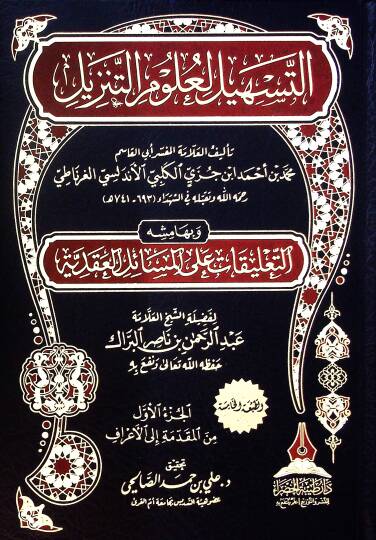 التسهيل لعلوم التنزيل
تأليف العلامة المفسر أبي القاسم
محمد بن أحمد ابن جزي الكلبي الأندلسي الغرناطي
رحمه الله وتقبله في الشهداء (٦٩٣-٧٤١هـ)
وبهامشه
التعليقات على المسائل العقدية
لفضيلة الشيخ العلامة
عبد الرحمن بن ناصر البراك
حفظه الله تعالى ونفع به
الطبعة الخامسة
الجزء الأول
من المقدمة إلى الأعراف
تحقيق
د. علي بن حمد الصالحي
عضو هيئة التدريس بجامعة أم القرى
دار طيبة الخضراء